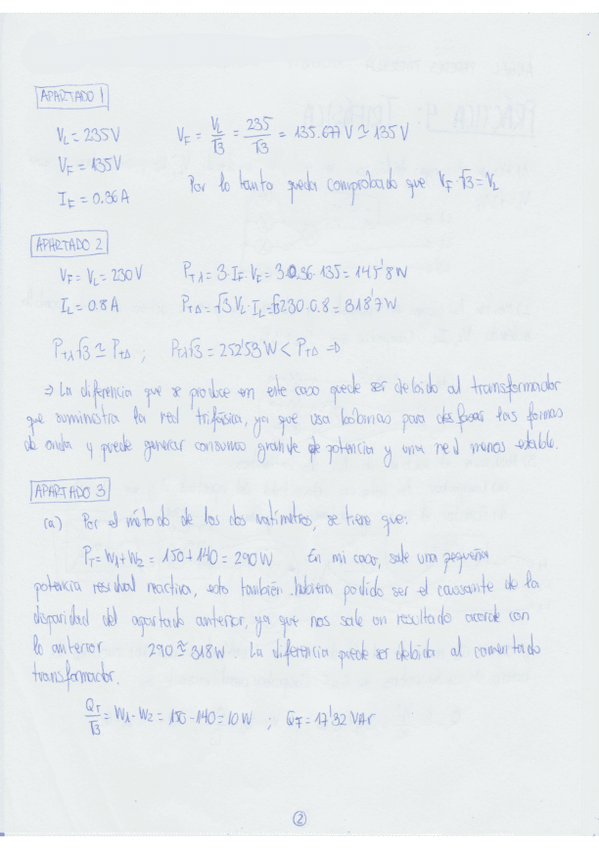 APARTADO 1
V_L = 235V V_F = V_L/√3 = 235/√3 = 135.677 V ≃ 135 V
V_F = 135V
I_F = 0.36A Por lo tanto queda comprobado que V_F·√3 = V_L
APARTADO 2
V_F = V_L = 230V P_Tλ = 3·I_F·V_F = 3·0.36·135 = 145'8W
I_L = 0.8A P_TΔ = √3 V_L·I_L = √3·230·0.8 = 318'7W
P_Tλ√3 ≃ P_TΔ ; P_Tλ√3 = 252'53W < P_TΔ ⇒
⇒ La diferencia que se produce en este caso puede ser debido al transformador
que suministra la red trifásica, ya que usa bobinas para desfasar las formas
de onda y puede generar consumos grande de potencia y una red menos estable.
APARTADO 3
(a) Por el método de los dos vatímetros, se tiene que:
P_T = W1 + W2 = 150 + 140 = 290W En mi caso, sale una pequeña
potencia residual reactiva, esto también hubiera podido ser el causante de la
disparidad del apartado anterior, ya que nos sale un resultado acorde con
lo anterior 290 ≃ 318W. La diferencia puede ser debida al comentado
transformador.
Q_T/√3 = W1 - W2 = 150 - 140 = 10W ; Q_T = 17'32 VAr
2